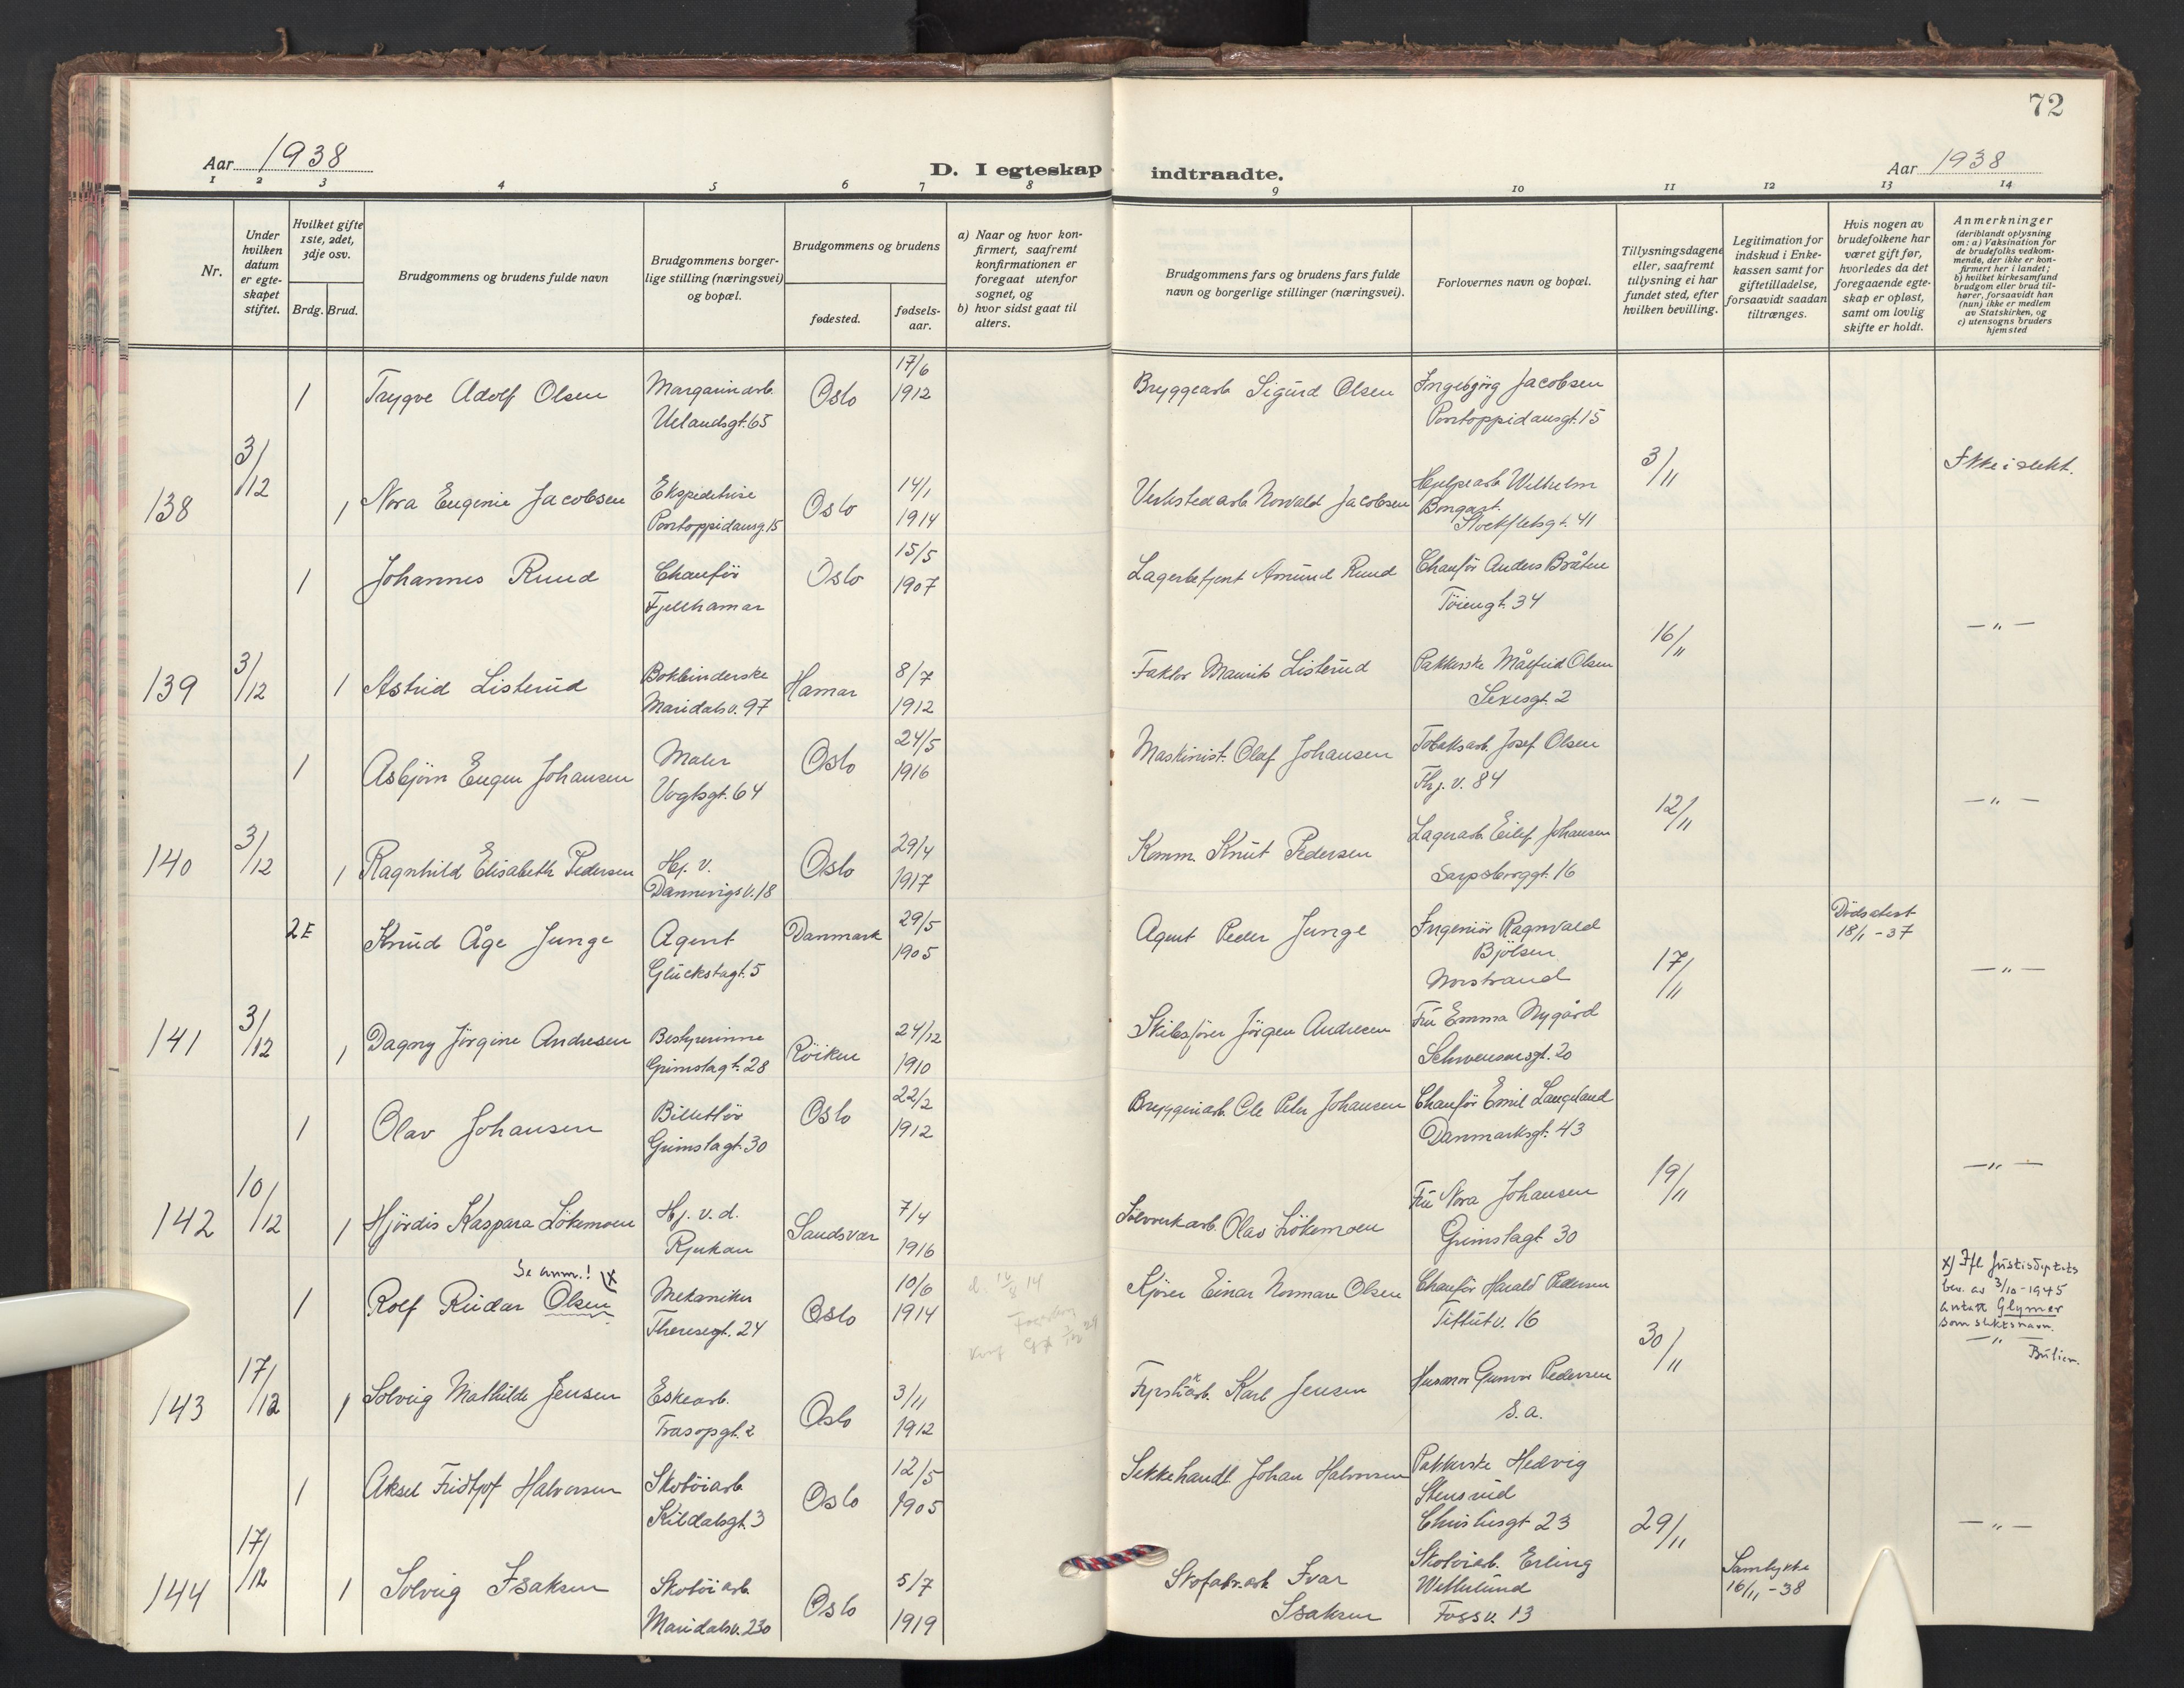 72
Aar 1938
D. I egteskap indtraadte.
Aar 1938
1 2 3 4 5 6 7 8 9 10 11 12 13 14
Nr.
Under hvilken datum er egteskapet stiftet.
Hvilket gifte 1ste, 2det, 3dje osv.
Brdg. Brud.
Brudgommens og brudens fulde navn
Brudgommens borgerlige stilling (næringsvei) og bopæl.
Brudgommens og brudens
fødested.
fødselsaar.
a) Naar og hvor konfirmert, saafremt konfirmationen er foregaat utenfor sognet, og
b) hvor sidst gaat til alters.
Brudgommens fars og brudens fars fulde navn og borgerlige stillinger (næringsvei).
Forlovernes navn og bopæl.
Tillysningsdagene eller, saafremt tillysning ei har fundet sted, efter hvilken bevilling.
Legitimation for indskud i Enkekassen samt for giftetilladelse, forsaavidt saadan tiltrænges.
Hvis nogen av brudefolkene har været gift før, hvorledes da det foregaaende egteskap er opløst, samt om lovlig skifte er holdt.
Anmerkninger (deriblandt oplysning om: a) Vaksination for de brudefolks vedkommende, der ikke er konfirmert her i landet; b) hvilket kirkesamfund brudgom eller brud tilhører, forsaavidt han (hun) ikke er medlem av Statskirken, og c) utensogns bruders hjemsted
1 Trygve Adolf Olsen Margarinarb. Uelandsgt. 65 Oslo 17/6 1912 Bryggearb. Sigurd Olsen Ingebjörg Jacobsen Pontoppidansgt. 15
138 3/12 1 Nora Eugenie Jacobsen Ekspeditrise Pontoppidansg. 15 Oslo 14/1 1914 Verkstedarb. Norvald Jacobsen Hjelpearb. Wilhelm Bongart. Stockfletsgt. 41 3/11 Ikke i slekt.
1 Johannes Ruud Chauför Fjellhamar Oslo 15/5 1907 Lagerbetjent Amund Ruud Chauför Anders Bråten Töiengt. 34
139 3/12 1 Astrid Listerud Bokbinderske Maridalsv. 97 Hamar 8/7 1912 Faktor Maurits Listerud Pakkerske Målfrid Olsen Sexesgt. 2 16/11 — „ —
1 Asbjörn Eugen Johansen Maler Vogtsgt. 64 Oslo 24/5 1916 Maskinist Olaf Johansen Tobaksarb. Josef Olsen Thj. v. 84
140 3/12 1 Ragnhild Elisabeth Pedersen Hj. v. Dannevigsv. 18 Oslo 29/4 1917 Komm. Knut Pedersen Lagerarb. Eilef Johansen Sarpsborggt. 16 12/11 — „ —
2E Knud Åge Junge Agent Glückstagt. 5 Danmark 29/5 1905 Agent Peder Junge Ingeniör Ragnvald Bjölsen Norstrand Dödsatest 18/1 - 37
141 3/12 1 Dagny Jörgine Andresen Bestyrerinne Grimstagt. 28 Röiken 24/12 1910 Skibsförer Jörgen Andresen Fru Emma Nygård Schwensensgt. 20 17/11 — „ —
1 Olav Johansen Billettör Grimstagt. 30 Oslo 22/2 1912 Bryggeriarb. Ole Peter Johansen Chauför Emil Langeland Danmarksgt. 43
142 10/12 1 Hjördis Kaspara Lökemoen Hj. v. d. Rjukan Sandsvær 7/4 1916 Sölvverkarb. Olav Lökemoen Fru Nora Johansen Grimstagt 30 19/11 — „ —
Se anm.! x
1 Rolf Reidar Olsen Mekaniker Theresegt. 24 Oslo 10/6 1914 Kjörer Einar Normann Olsen Chauför Harald Pedersen Tittutv. 16
x) Ifl Justisdeptets bev. av 3/10-1945 antatt Glymer som slektsnavn.
143 17/12 1 Solveig Mathilde Jensen Eskearb. Trasopgt. 2 Oslo 3/11 1912 Fyrstikarb. Karl Jensen Husmor Gunvor Pedersen S. a. 30/11 — „ —
1 Aksel Fridtjof Halvorsen Skotöiarb. Kildalsgt. 3 Oslo 12/5 1905 Sekkehandl. Johan Halvorsen Pakkerske Hedvig Stensrud Christiesgt 23
144 17/12 1 Solveig Isaksen Skotöiarb. Maridalsv. 230 Oslo 5/7 1919 Skofabr.arb. Ivar Isaksen Skotöiarb. Erling Wetterlund Fossv. 13 29/11 Samtykke 16/11 - 38 — „ —